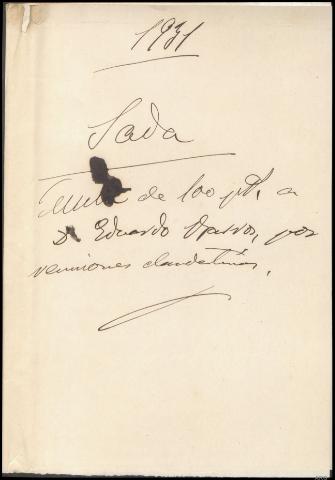 1931
Sada
Multa de 100 pts. a
D. Eduardo Ojarro, por
reuniones clandestinas.